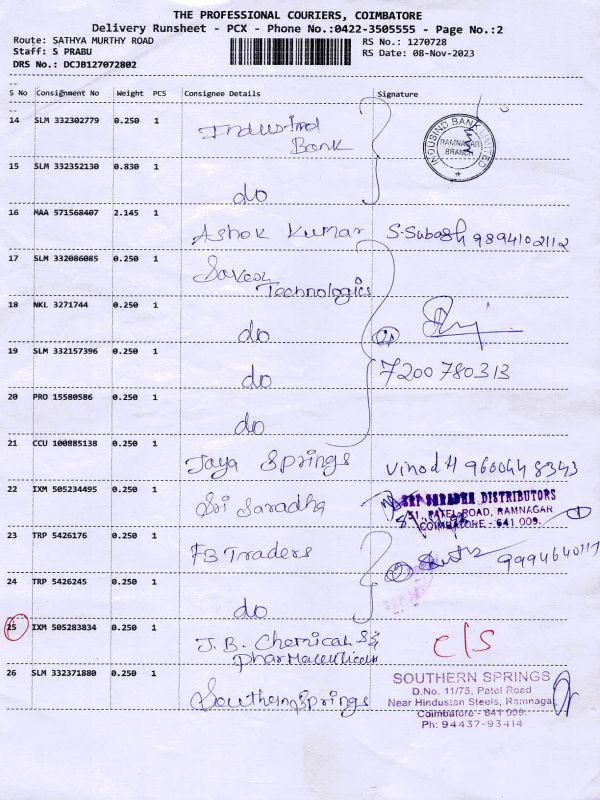 THE PROFESSIONAL COURIERS, COIMBATORE
Delivery Runsheet - PCX - Phone No.:0422-3505555 - Page No.:2
Route: SATHYA MURTHY ROAD
Staff: S PRABU
DRS No.: DCJB127072802
RS No.: 1270728
RS Date: 08-Nov-2023
S No Consignment No Weight PCS Consignee Details Signature
14 SLM 332302779 0.250 1 Indusind Bank
INDUSIND BANK LIMITED
RAMNAGAR
BRANCH
15 SLM 332352130 0.830 1 do
16 MAA 571568407 2.145 1 Ashok Kumar S.Subash 9894102112
17 SLM 332086085 0.250 1 Technologies
18 NKL 3271744 0.250 1 do
19 SLM 332157396 0.250 1 do 7200780313
20 PRO 15580586 0.250 1 do
21 CCU 100885138 0.250 1 Jaya Springs Vinod H 9600448343
22 IXM 505234495 0.250 1 Sri Saradha
SRI SARADHA DISTRIBUTORS
51, PATEL ROAD, RAMNAGAR
COIMBATORE - 641 009.
1
23 TRP 5426176 0.250 1 FB Traders
2
24 TRP 5426245 0.250 1 do
25 IXM 505283834 0.250 1 J.B. Chemical & Pharmaceutical c/s
26 SLM 332371880 0.250 1 Southern Springs
SOUTHERN SPRINGS
D.No. 11/75, Patel Road
Near Hindustan Steels, Ramnagar,
Coimbatore - 641 009.
Ph: 94437-93414